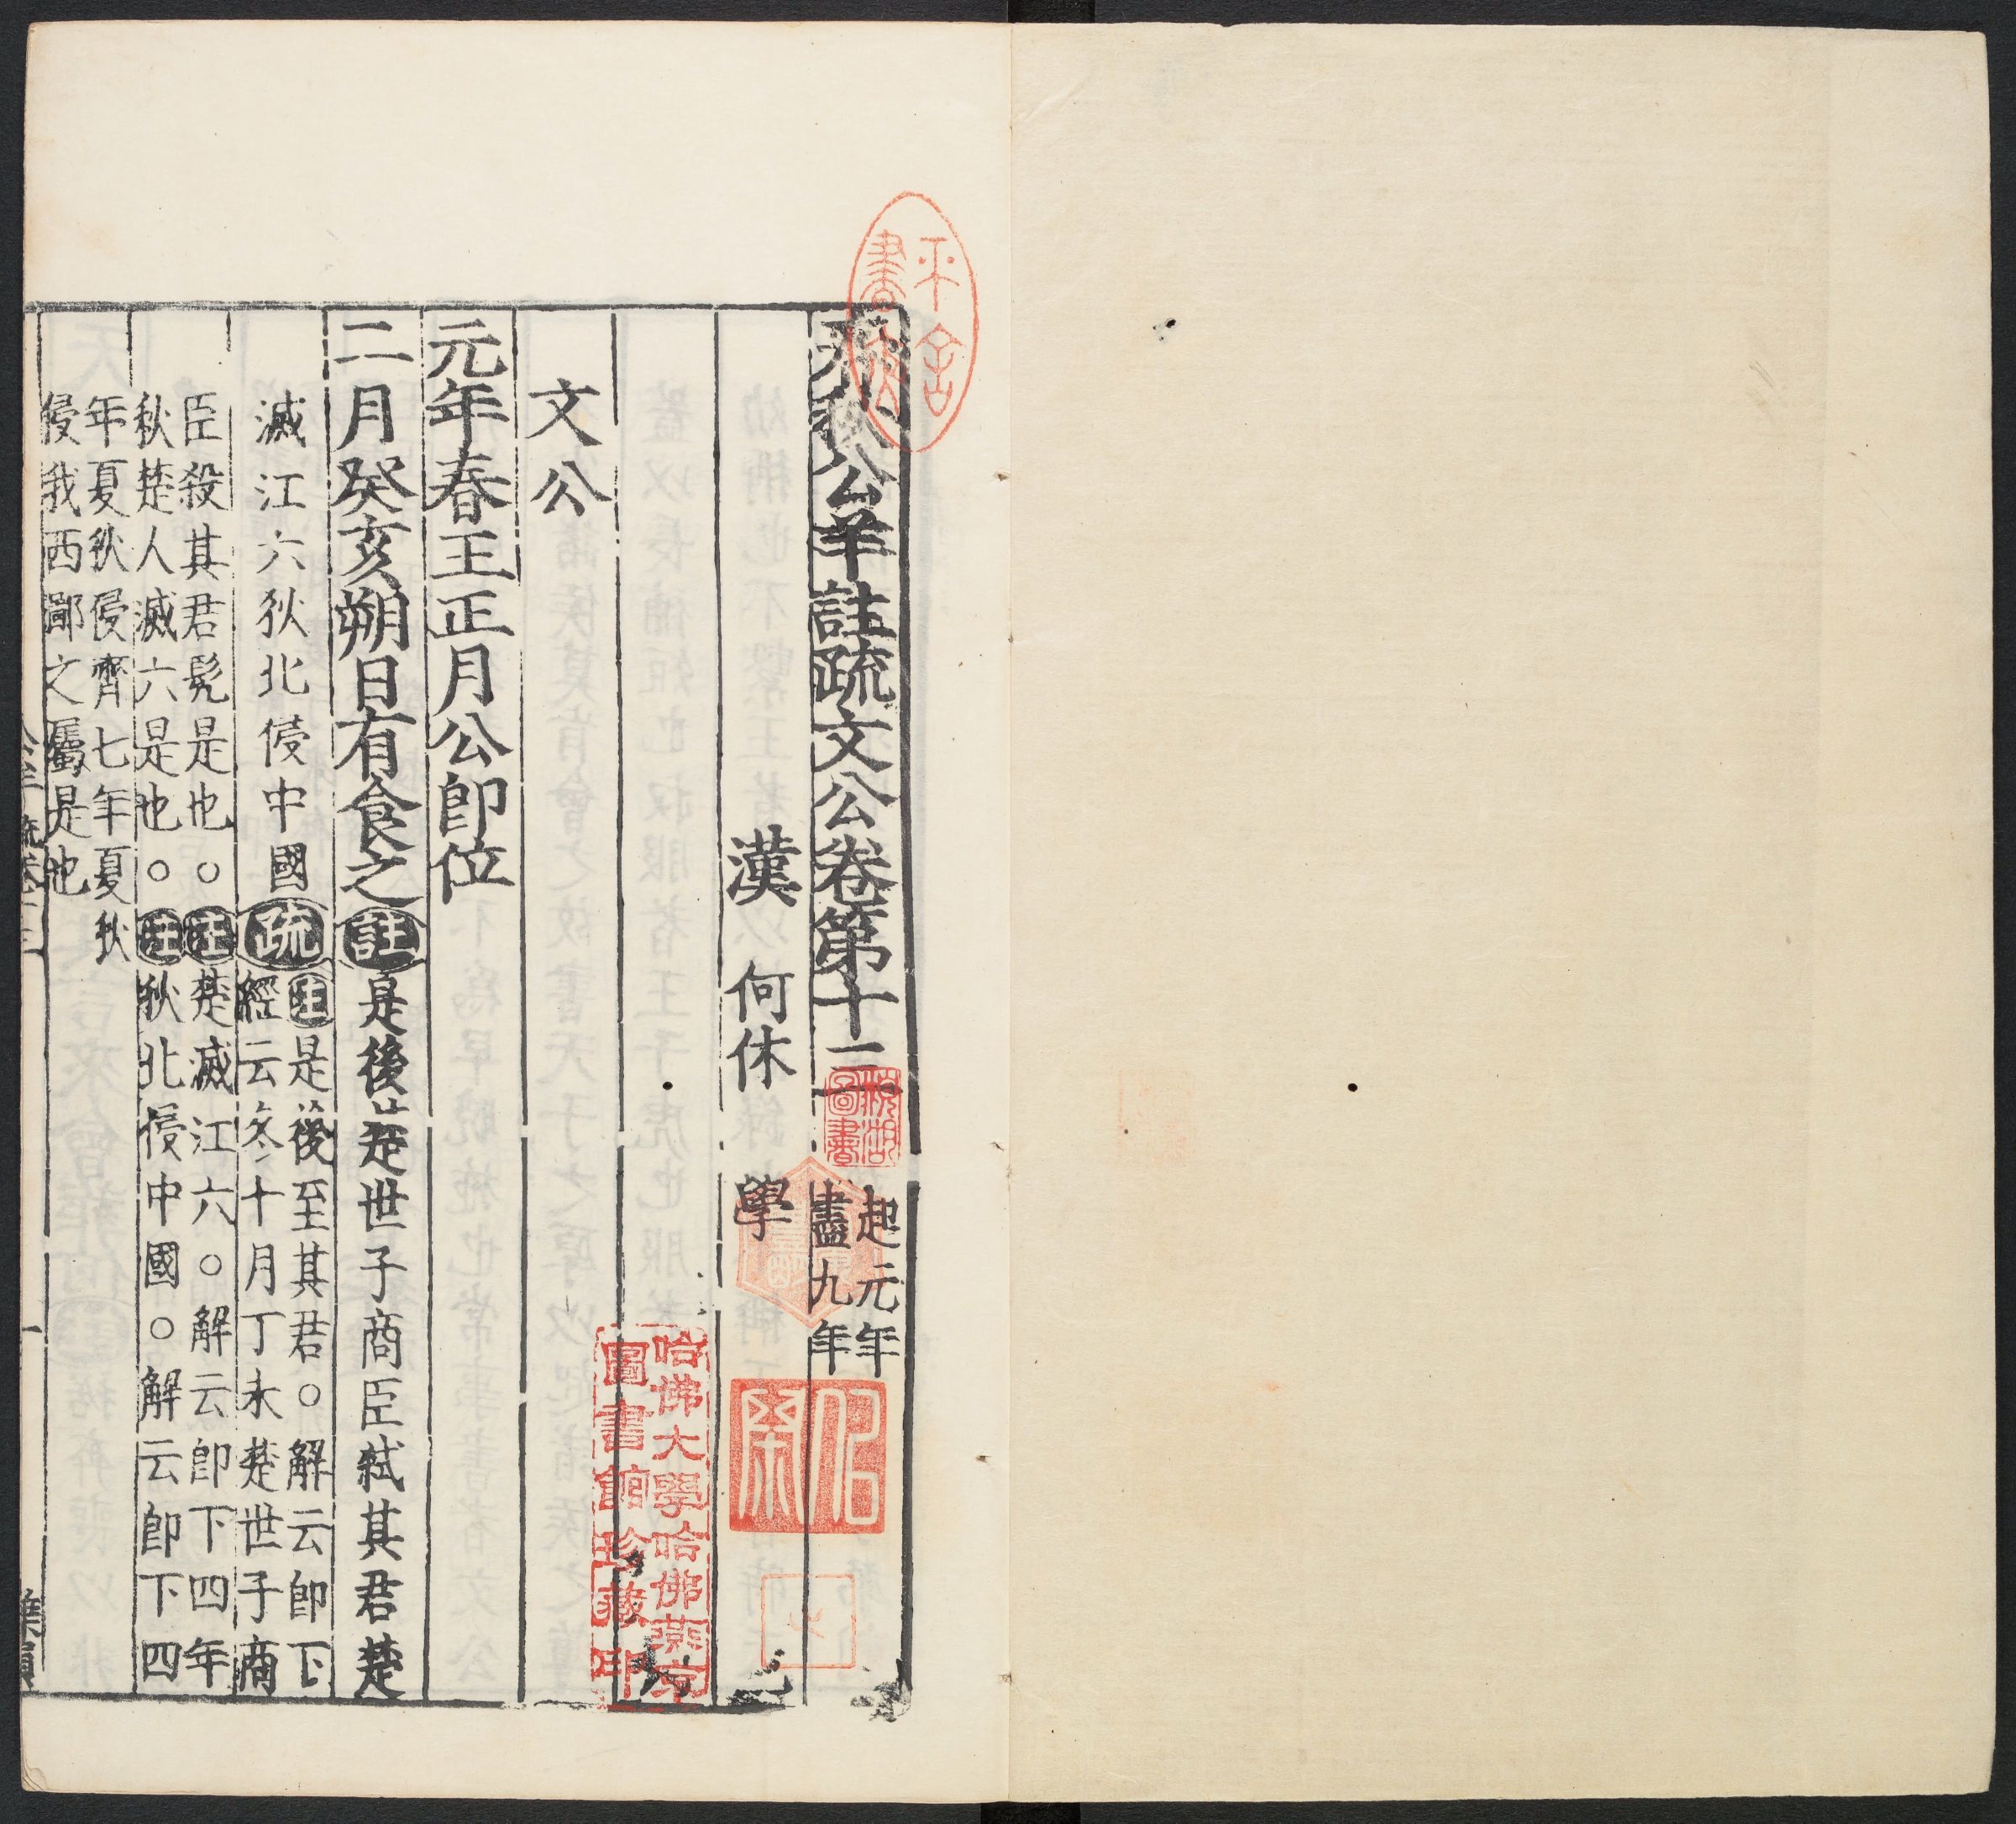 春秋公羊註疏文公卷第十三
起元年
盡九年
漢 何休 學
文公
元年春王正月公卽位
二月癸亥朔日有食之註是後楚世子商臣弒其君楚
滅江六狄北侵中國疏
註是後至其君○解云卽下
經云冬十月丁未楚世子商
臣殺其君髡是也○註楚滅江六○解云卽下四年
秋楚人滅六是也○註狄北侵中國○解云卽下四
年夏狄侵齊七年夏狄
侵我西鄙之屬是也
哈佛大學哈佛燕京
圖書館珍藏印